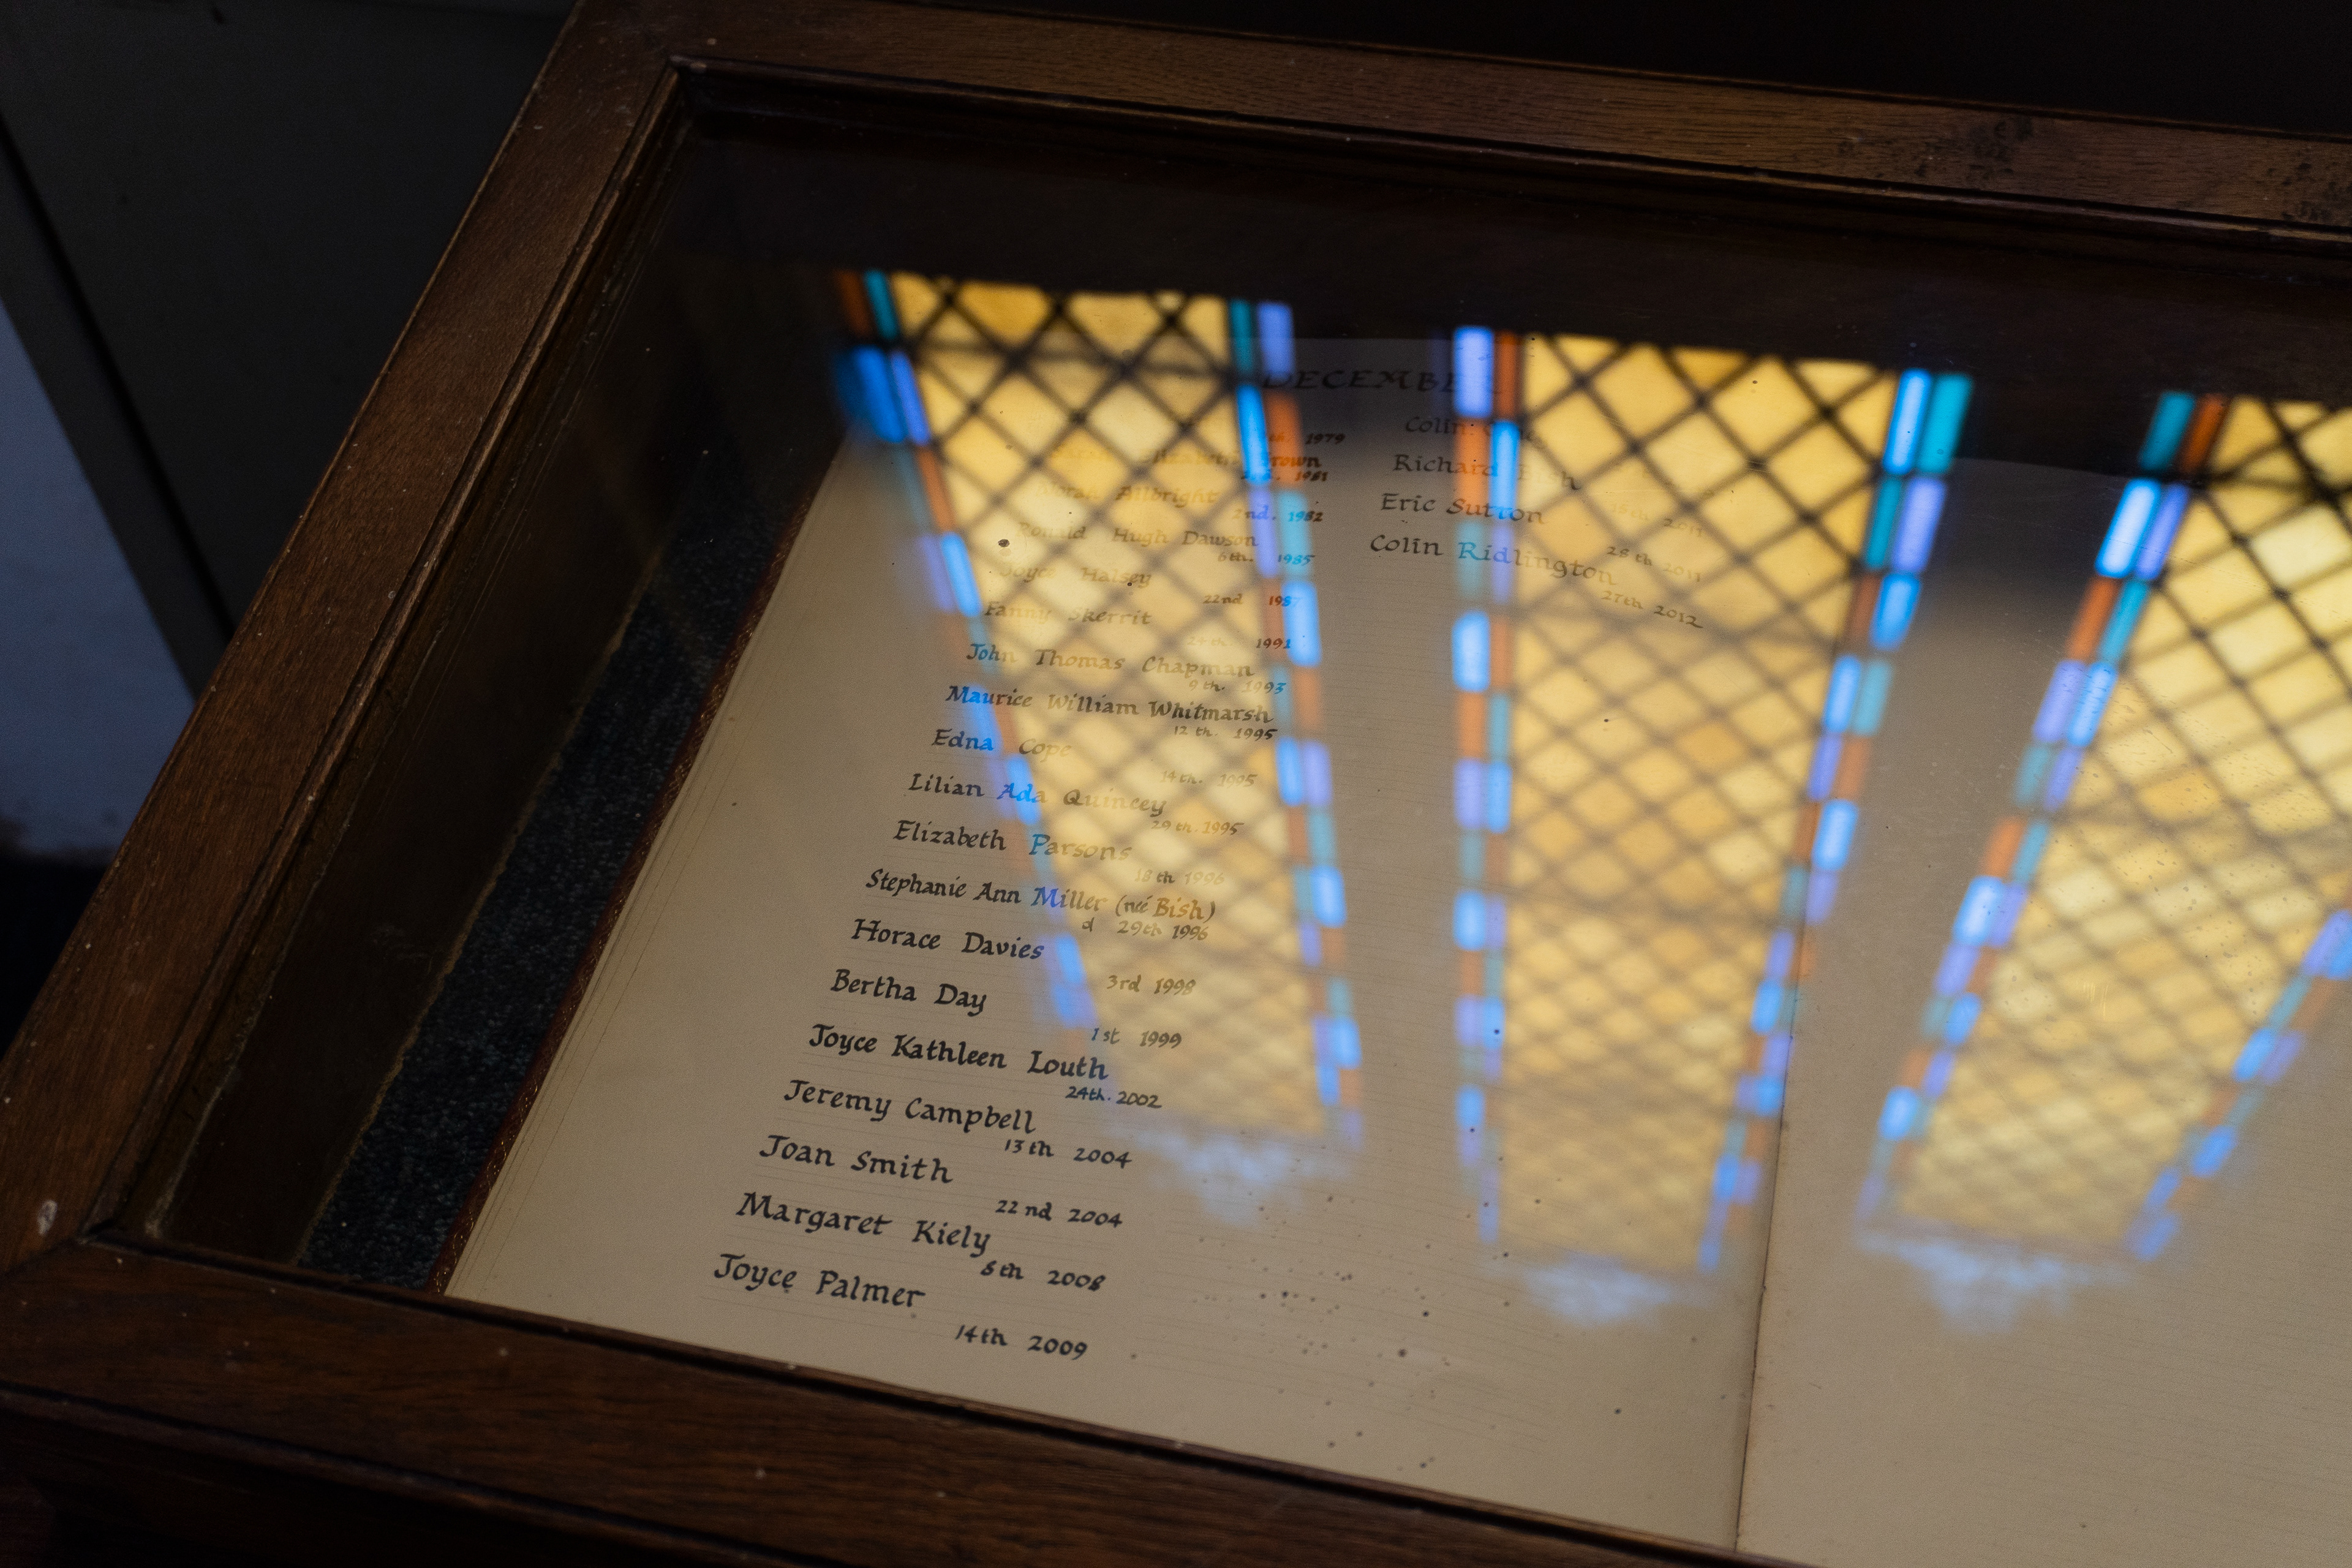 DECEMBE
th. 1979
Elizabeth Brown
1981
Norah Allbright
2nd. 1982
Ronald Hugh Dawson
6th. 1985
Joyce Halsey
22nd 1987
Fanny Skerrit
24th 1991
John Thomas Chapman
9th. 1993
Maurice William Whitmarsh
12th. 1995
Edna Cope
14th. 1995
Lilian Ada Quincey
29th. 1995
Elizabeth Parsons
18th 1996
Stephanie Ann Miller (neé Bish)
d 29th 1996
Horace Davies
3rd 1998
Bertha Day
1st 1999
Joyce Kathleen Louth
24th. 2002
Jeremy Campbell
13th 2004
Joan Smith
22nd 2004
Margaret Kiely
8th 2008
Joyce Palmer
14th 2009
Colin
Richard Bish
Eric Sutton
28th 2011
Colin Ridlington
27th 2012